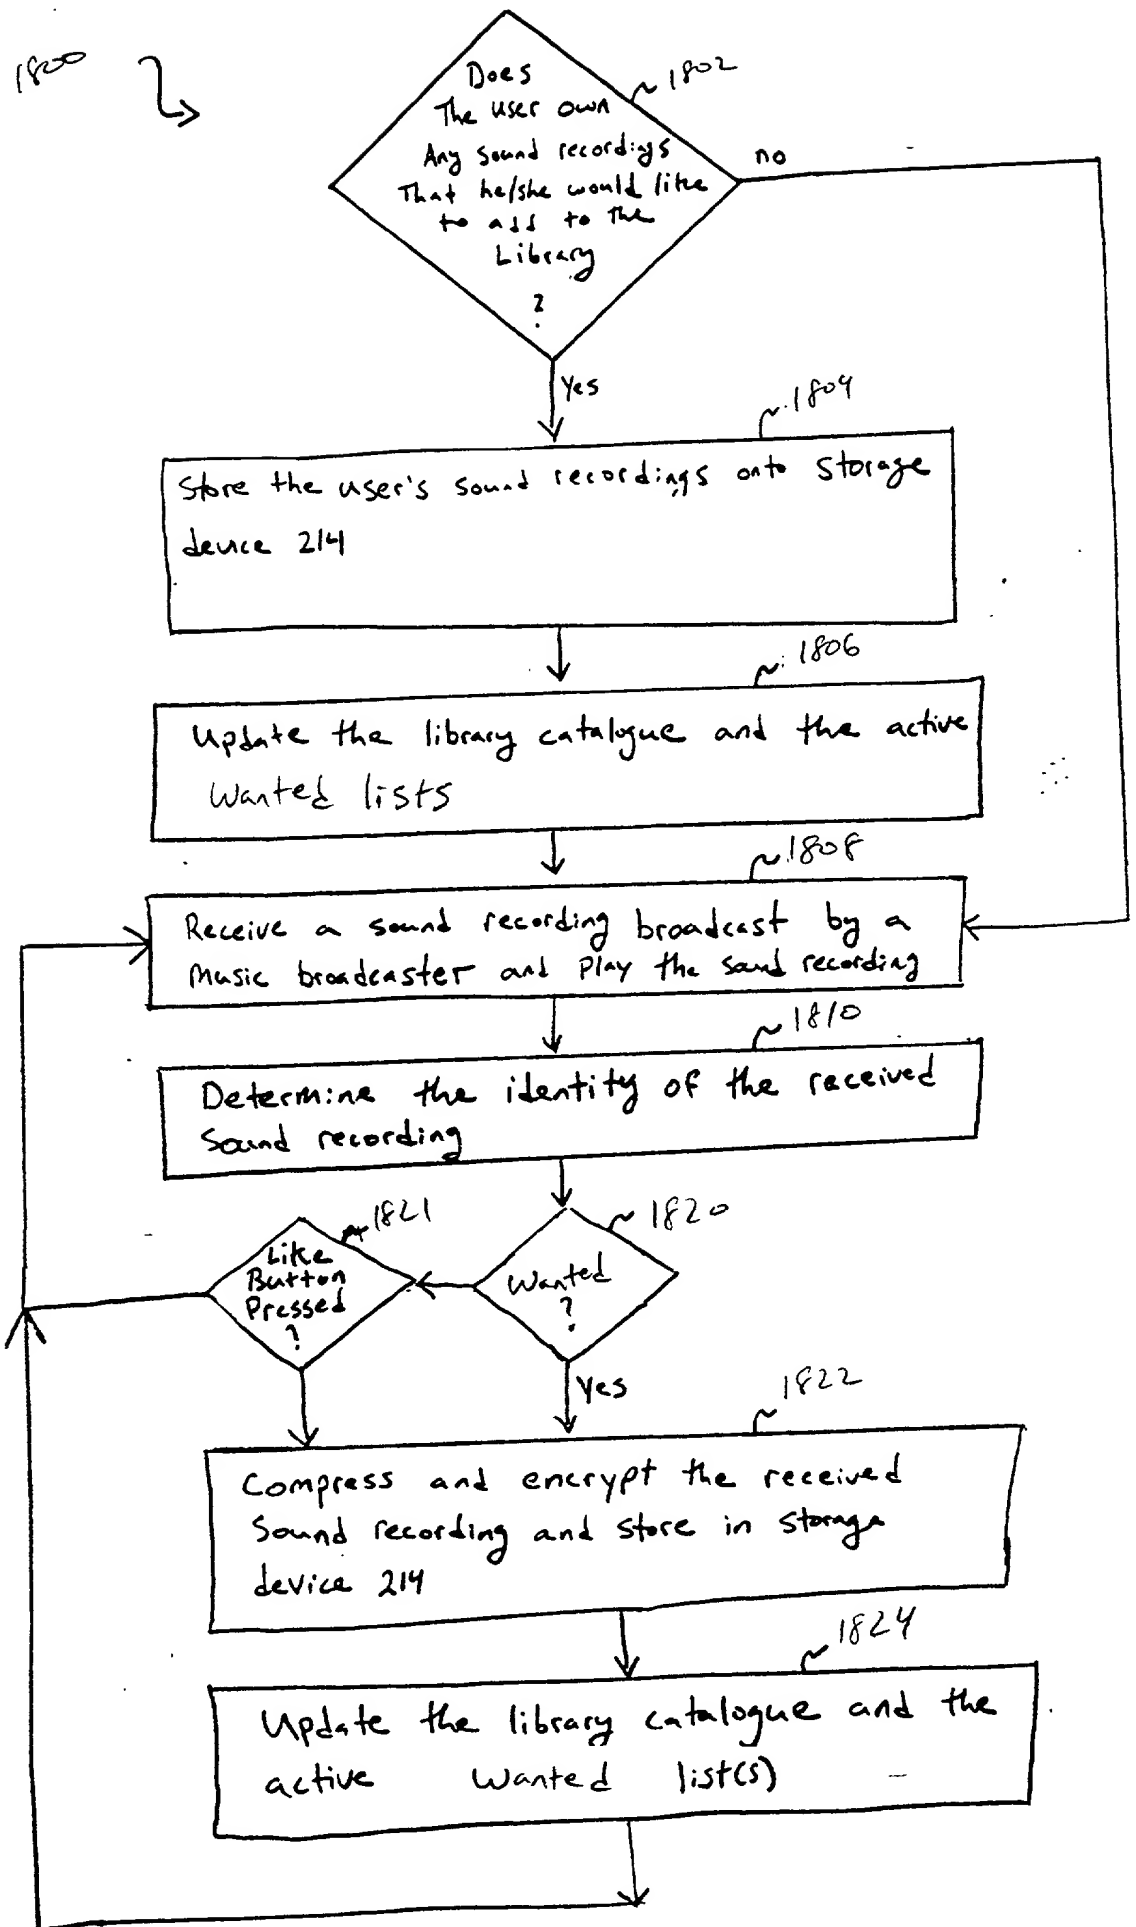 1800
Does
The user own
Any sound recordings
That he/she would like
to add to the
Library
?
1802
no
Yes
1804
Store the user's sound recordings onto storage
device 214
1806
Update the library catalogue and the active
Wanted lists
1808
Receive a sound recording broadcast by a
Music broadcaster and Play the sound recording
1810
Determine the identity of the received
Sound recording
1821
Like
Button
Pressed
?
1820
Wanted
?
Yes
1822
Compress and encrypt the received
Sound recording and store in storage
device 214
1824
Update the library catalogue and the
active Wanted list(s)